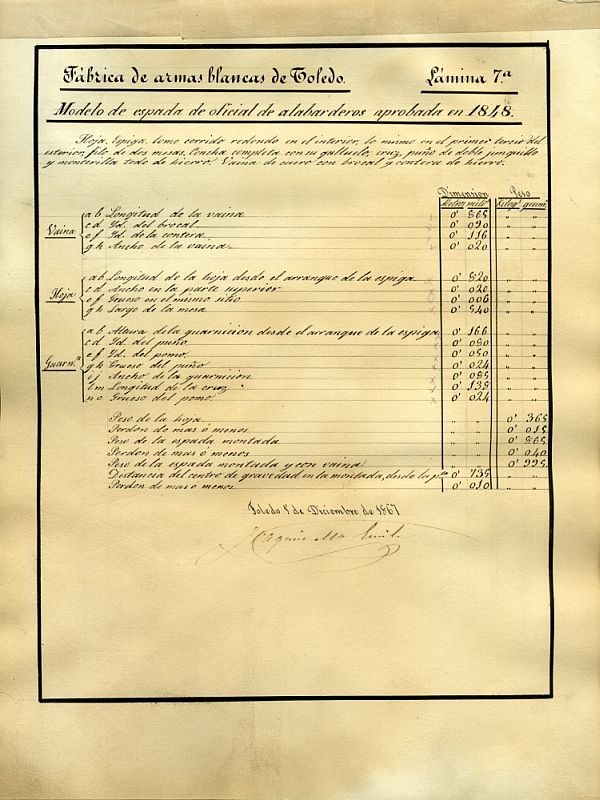 Fábrica de armas blancas de Toledo. Lámina 7.ª
Modelo de espada de oficial de alabarderos aprobada en 1848.
Hoja. Espiga, lomo corrido redondo en el interior, lo mismo en el primer tercio del
esterior, filo de dos mesas, Concha completa con su galluelo, cruz, puño de doble junquillo
y monterilla todo de hierro. Vaina de cuero con brocal y contera de hierro.
Dimension Peso
Metros milits Kilogs grams
Vaina
a b Longitud de la vaina 0' 865 " "
c d Id. del brocal 0' 090 " "
e f Id. de la contera 0' 116 " "
g h Ancho de la vaina 0' 020 " "
Hoja
a b Longitud de la hoja desde el arranque de la espiga 0' 820 " "
c d Ancho en la parte superior 0' 020 " "
e f Grueso en el mismo sitio 0' 006 " "
g h Largo de la mesa 0' 540 " "
Guarn.n
a b Altura de la guarnicion desde el arranque de la espiga 0' 166 " "
c d Id. del puño 0' 080 " "
e f Id. del pomo 0' 050 " "
g h Grueso del puño 0' 024 " "
i j Ancho de la guarnicion 0' 085 " "
l m Longitud de la cruz 0' 138 " "
n o Grueso del pomo 0' 024 " "
Peso de la hoja " " 0' 365
Perdon de mas ó menos " " 0' 015
Peso de la espada montada " " 0' 865
Perdon de mas ó menos " " 0' 040
Peso de la espada montada y con vaina " " 0' 995
Distancia del centro de gravedad en la montada, desde la pta 0' 735 " "
Perdon de mas ó menos 0' 010 " "
Toledo 8 de Diciembre de 1867